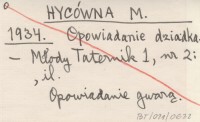 HYCÓWNA M.
1934. Opowiadanie dziadka.
– Młody Taternik 1, nr 2:
, il.
Opowiadanie gwarą.